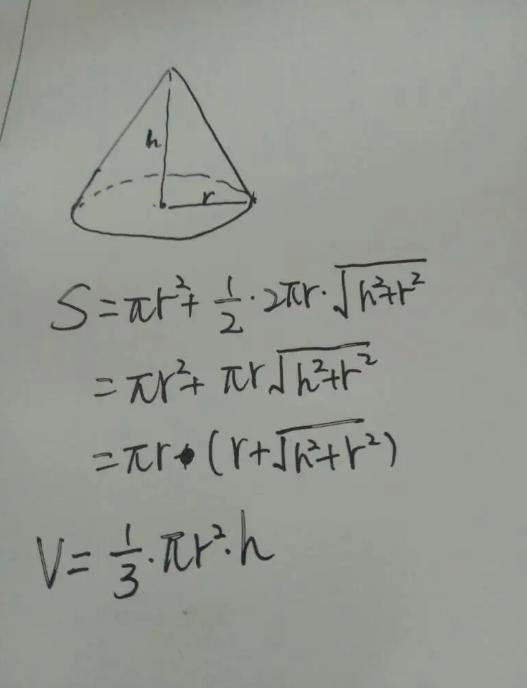 h
r
S=πr²+½·2πr·√(h²+r²)
=πr²+πr√(h²+r²)
=πr·(r+√(h²+r²))
V=⅓·πr²·h